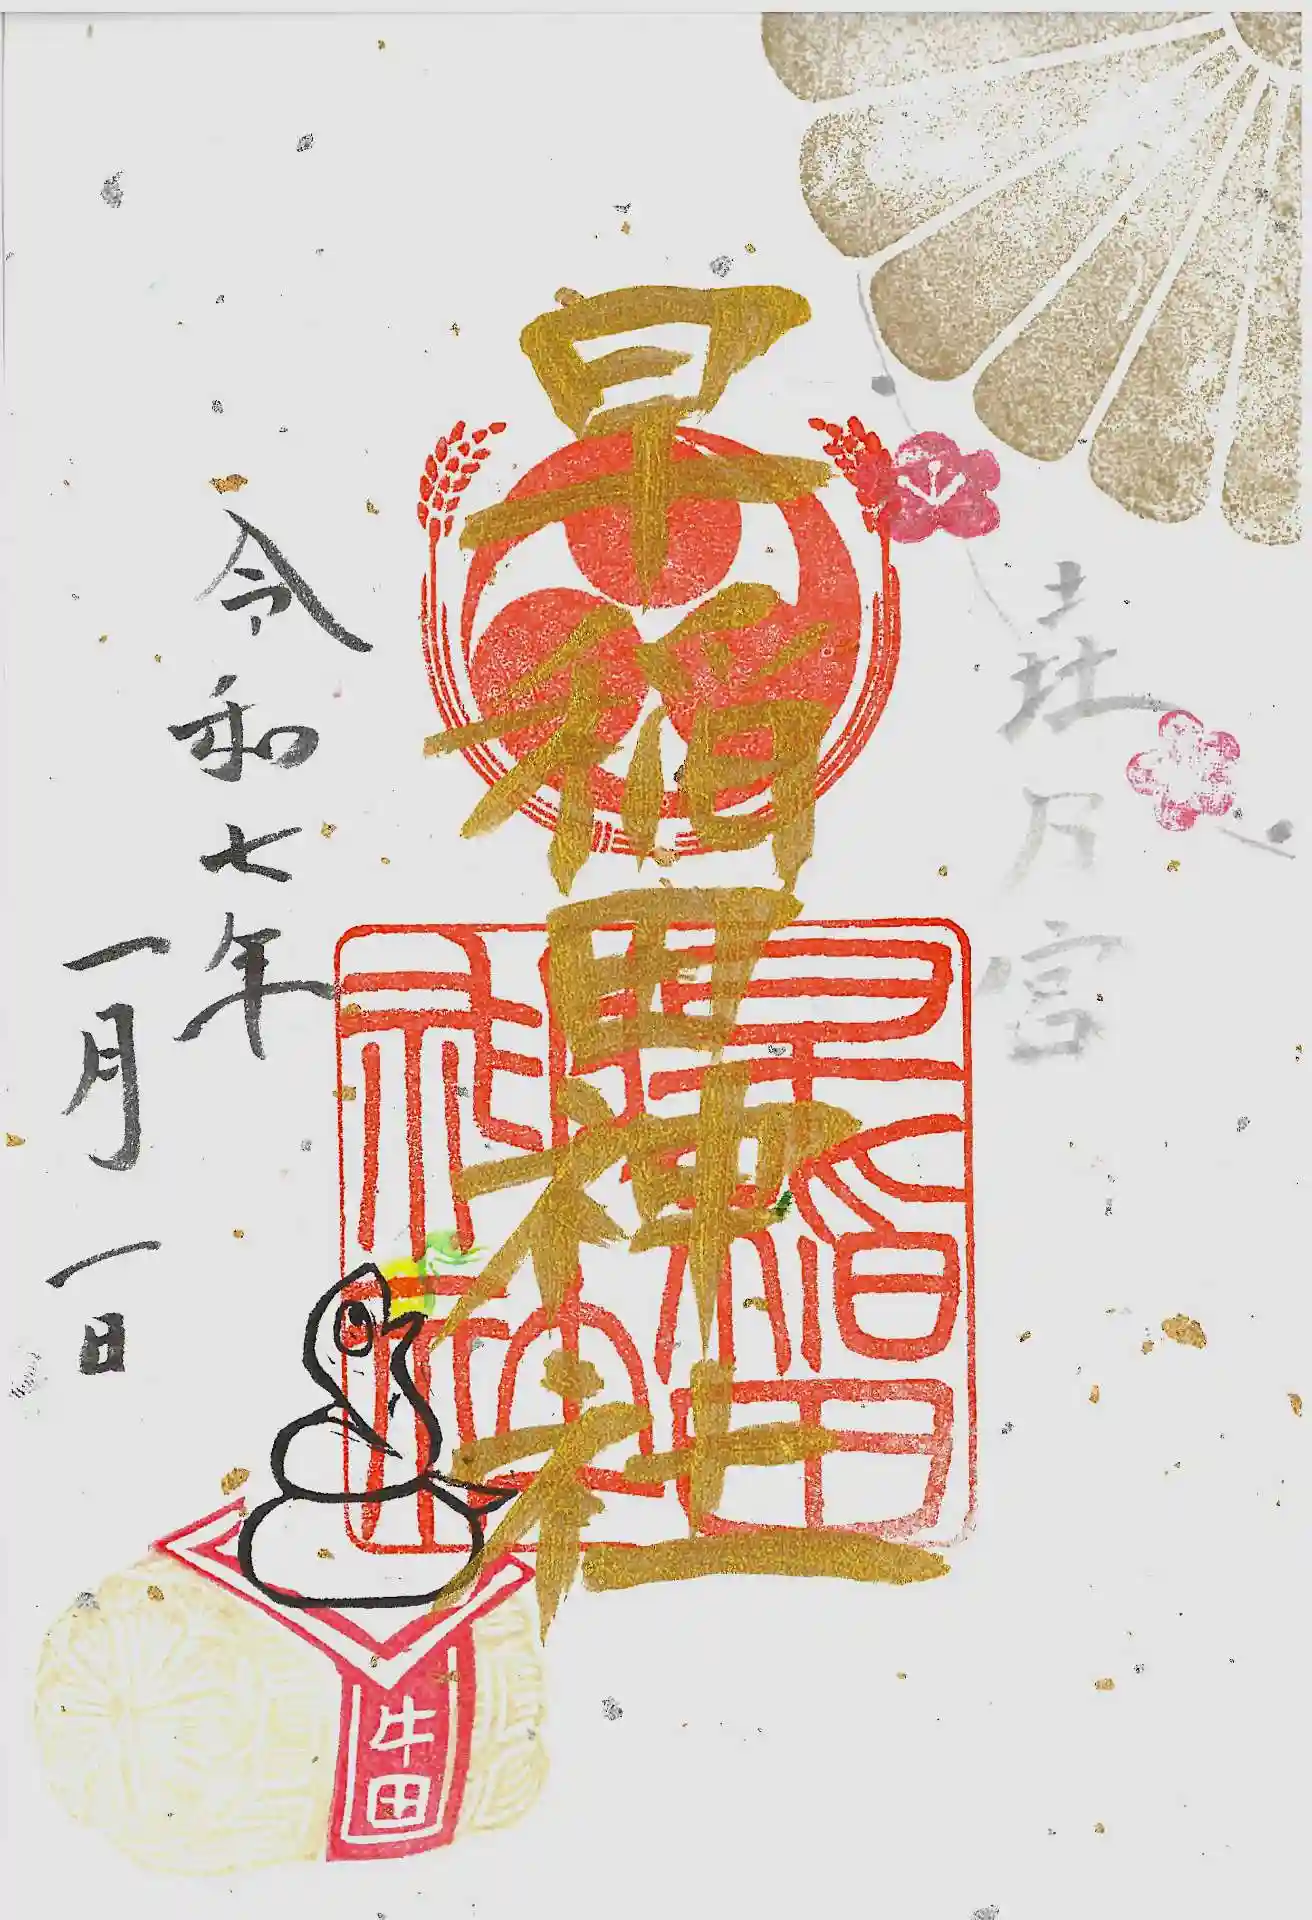 早稲田神社
早稲田
神社
令和七年
一月一日
牛田